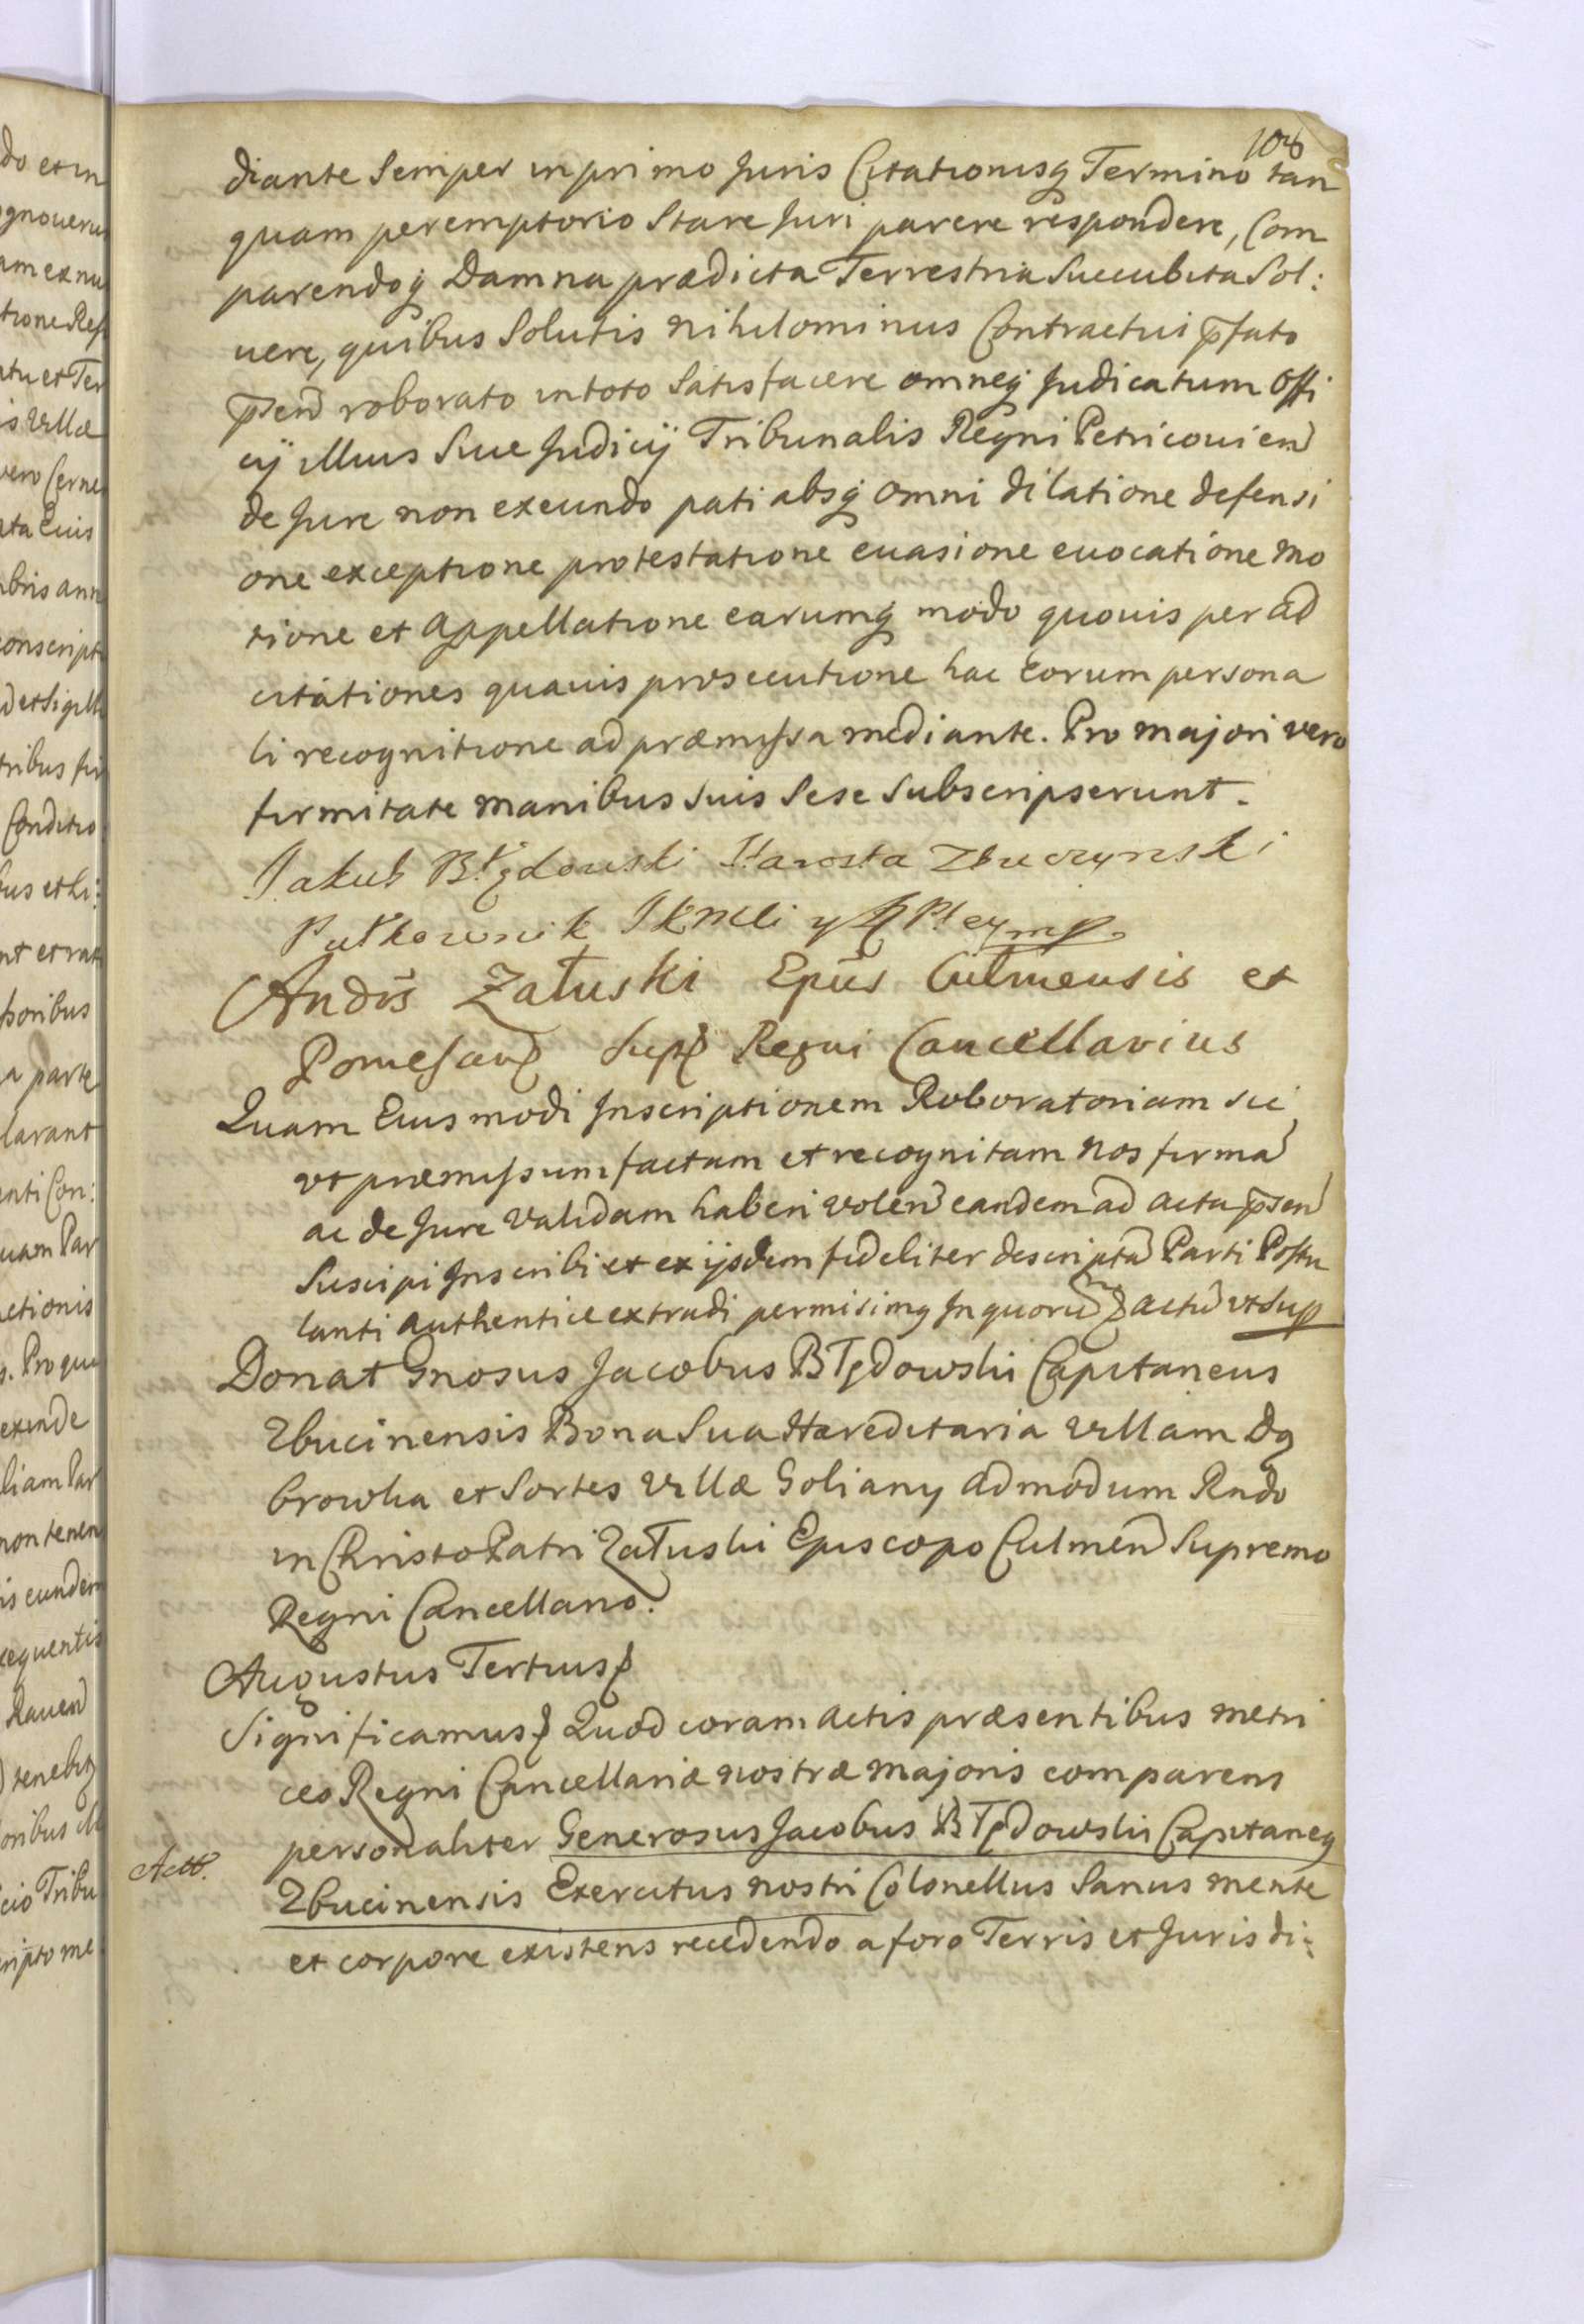 108
diante Semper in primo Juris Citationisq Termino tan
quam peremptorio Stare Juri parere respondere, Com
parendoq Damna prædicta Terrestria Succubita Sol:
uere, quibus Solutis nihilominus Contractui p̄fato
p̄sen roborato in toto Satisfacere omneq Judicatum Offi
cij illius Siue Judicij Tribunalis Regni Petricouien
de Jure non exeundo pati absq omni dilatione defensi
one exceptione protestatione euasione euocatione mo
tione et appellatione earumq modo quouis per ad
citationes quauis prosecutione hac Eorum persona
li recognitione ad præmissa mediante. Pro majori vero
firmitate manibus suis Sese Subscripserunt.
Jakub Błędowski Starosta Zbuczynski
Pułkownik JKMci mp
Andrs Załuski Epūs Culmensis et
Pomesan Sup Regni Cancellarius
Quam Eiusmodi Inscriptionem Roboratoriam sic
vt præmissum factam et recognitam nos firma
ac de Jure Validam haberi volen eandem ad acta p̄sen
Suscipi Inscribi et ex ijsdem fideliter descripta Parti Postu
lanti authentice extradi permisimq In quorū actū vt Sup
Donat Gnosus Jacobus Błędowski Capitaneus
Zbucinensis Bona Sua Hæreditaria Villam Dą
browka et Sortes Villæ Goliany admodum Rndo
in Christo Patri Załuski Episcopo Culmen Supremo
Regni Cancellario.
Augustus Tertius
Significamus Quod coram actis præsentibus metri
ces Regni Cancellariæ nostræ majoris comparens
personaliter Generosus Jacobus Błędowski Capitaneq
Actt.
Zbucinensis Exercitus nostri Colonellus Sanus mente
et corpore existens recedendo a foro Terris et Jurisdi: